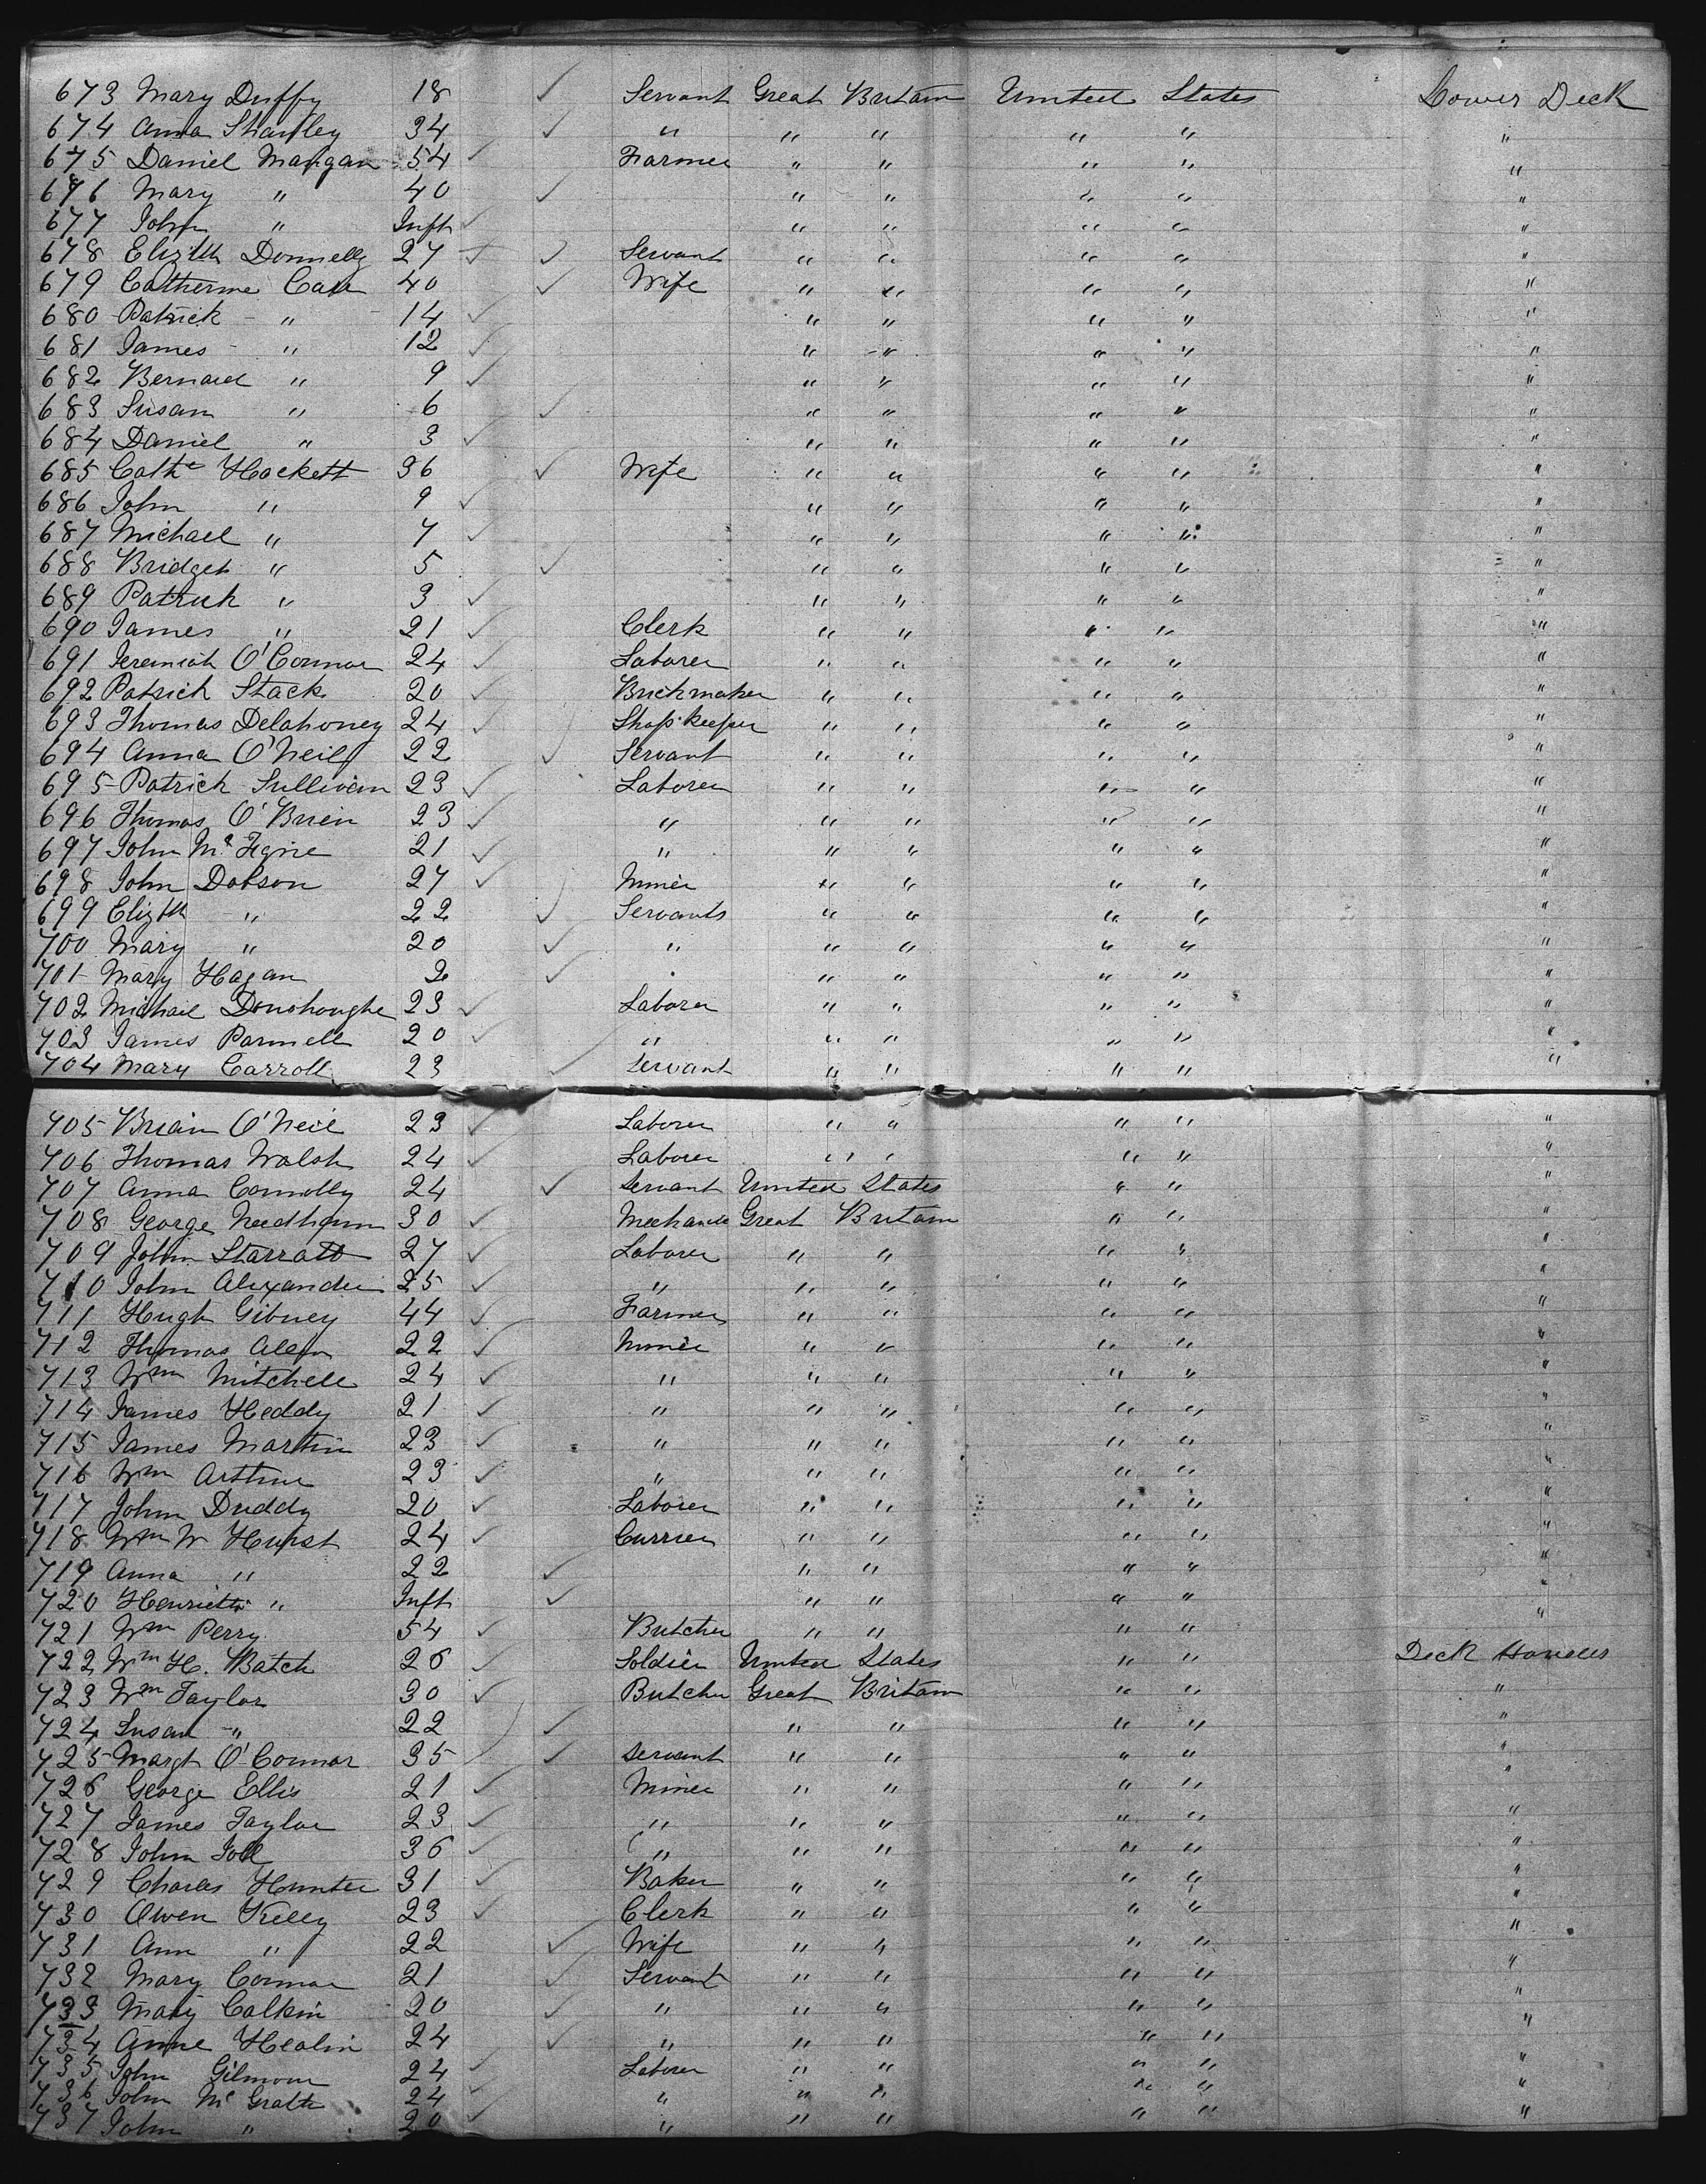 673 Mary Duffy 18 ✓ Servant Great Britain United States Lower Deck
674 Anna Shanley 34 ✓ " " " " " "
675 Daniel Mangan 54 ✓ Farmer " " " " "
676 Mary " 40 ✓ " " " " "
677 John " Inft ✓ " " " " "
678 Elizth Donnelly 27 ✓ ✓ Servant " " " " "
679 Catherine Carr 40 ✓ Wife " " " " "
680 Patrick " 14 ✓ " " " " "
681 James " 12 ✓ " " " " "
682 Bernard " 9 ✓ " " " " "
683 Susan " 6 ✓ " " " " "
684 Daniel " 3 ✓ " " " " "
685 Cathe Hackett 36 ✓ Wife " " " " "
686 John " 9 ✓ " " " " "
687 Michael " 7 ✓ " " " " "
688 Bridget " 5 ✓ " " " " "
689 Patrick " 3 ✓ " " " " "
690 James " 21 ✓ Clerk " " " " "
691 Jeremiah O'Connor 24 ✓ Laborer " " " " "
692 Patrick Stack 20 ✓ Brickmaker " " " " "
693 Thomas Delahoney 24 ✓ Shop-keeper " " " " "
694 Anna O'Neill 22 ✓ Servant " " " " "
695 Patrick Sullivan 23 ✓ Laborer " " " " "
696 Thomas O'Brien 23 ✓ " " " " " "
697 John 21 ✓ " " " " " "
698 John Dobson 27 ✓ Miner " " " " "
699 Elizth " 22 ✓ Servants " " " " "
700 Mary " 20 ✓ " " " " " "
701 Mary Hagan 2 ✓ " " " " "
702 Michael Donohoughe 23 ✓ Laborer " " " " "
703 James Parnell 20 ✓ " " " " " "
704 Mary Carroll 23 ✓ Servant " " " " "
705 Brian O'Neil 23 ✓ Laborer " " " " "
706 Thomas Walsh 24 ✓ Laborer " " " " "
707 Anna Connolly 24 ✓ Servant United States " " "
708 George Needham 30 ✓ Mechanic Great Britain " " "
709 John Starratt 27 ✓ Laborer " " " " "
710 John Alexander 25 ✓ " " " " " "
711 Hugh Gibney 44 ✓ Farmer " " " " "
712 Thomas Allen 22 ✓ Miner " " " " "
713 Wm Mitchell 24 ✓ " " " " " "
714 James Heddy 21 ✓ " " " " " "
715 James Martin 23 ✓ " " " " " "
716 Wm Arthur 23 ✓ " " " " " "
717 John Duddy 20 ✓ Laborer " " " " "
718 Wm W Hurst 24 ✓ Currier " " " " "
719 Anna " 22 ✓ " " " " "
720 Henrietta " Inft ✓ " " " " "
721 Wm Perry 54 ✓ Butcher " " " " "
722 Wm H. Batch 26 ✓ Soldier United States " " Deck Houses
723 Wm Taylor 30 ✓ Butcher Great Britain " " "
724 Susan " 22 ✓ " " " " "
725 Margt O'Connor 35 ✓ Servant " " " " "
726 George Ellis 21 ✓ Miner " " " " "
727 James Taylor 23 ✓ " " " " " "
728 John Joll 36 ✓ " " " " " "
729 Charles Hunter 31 ✓ Baker " " " " "
730 Owen Kelly 23 ✓ Clerk " " " " "
731 Ann " 22 ✓ Wife " " " " "
732 Mary Connor 21 ✓ Servant " " " " "
733 Mary Calkin 20 ✓ " " " " " "
734 Anne Healin 24 ✓ " " " " " "
735 John Gilmour 24 ✓ Laborer " " " " "
736 John McGrath 24 ✓ " " " " " "
737 John " 20 ✓ " " " " " "